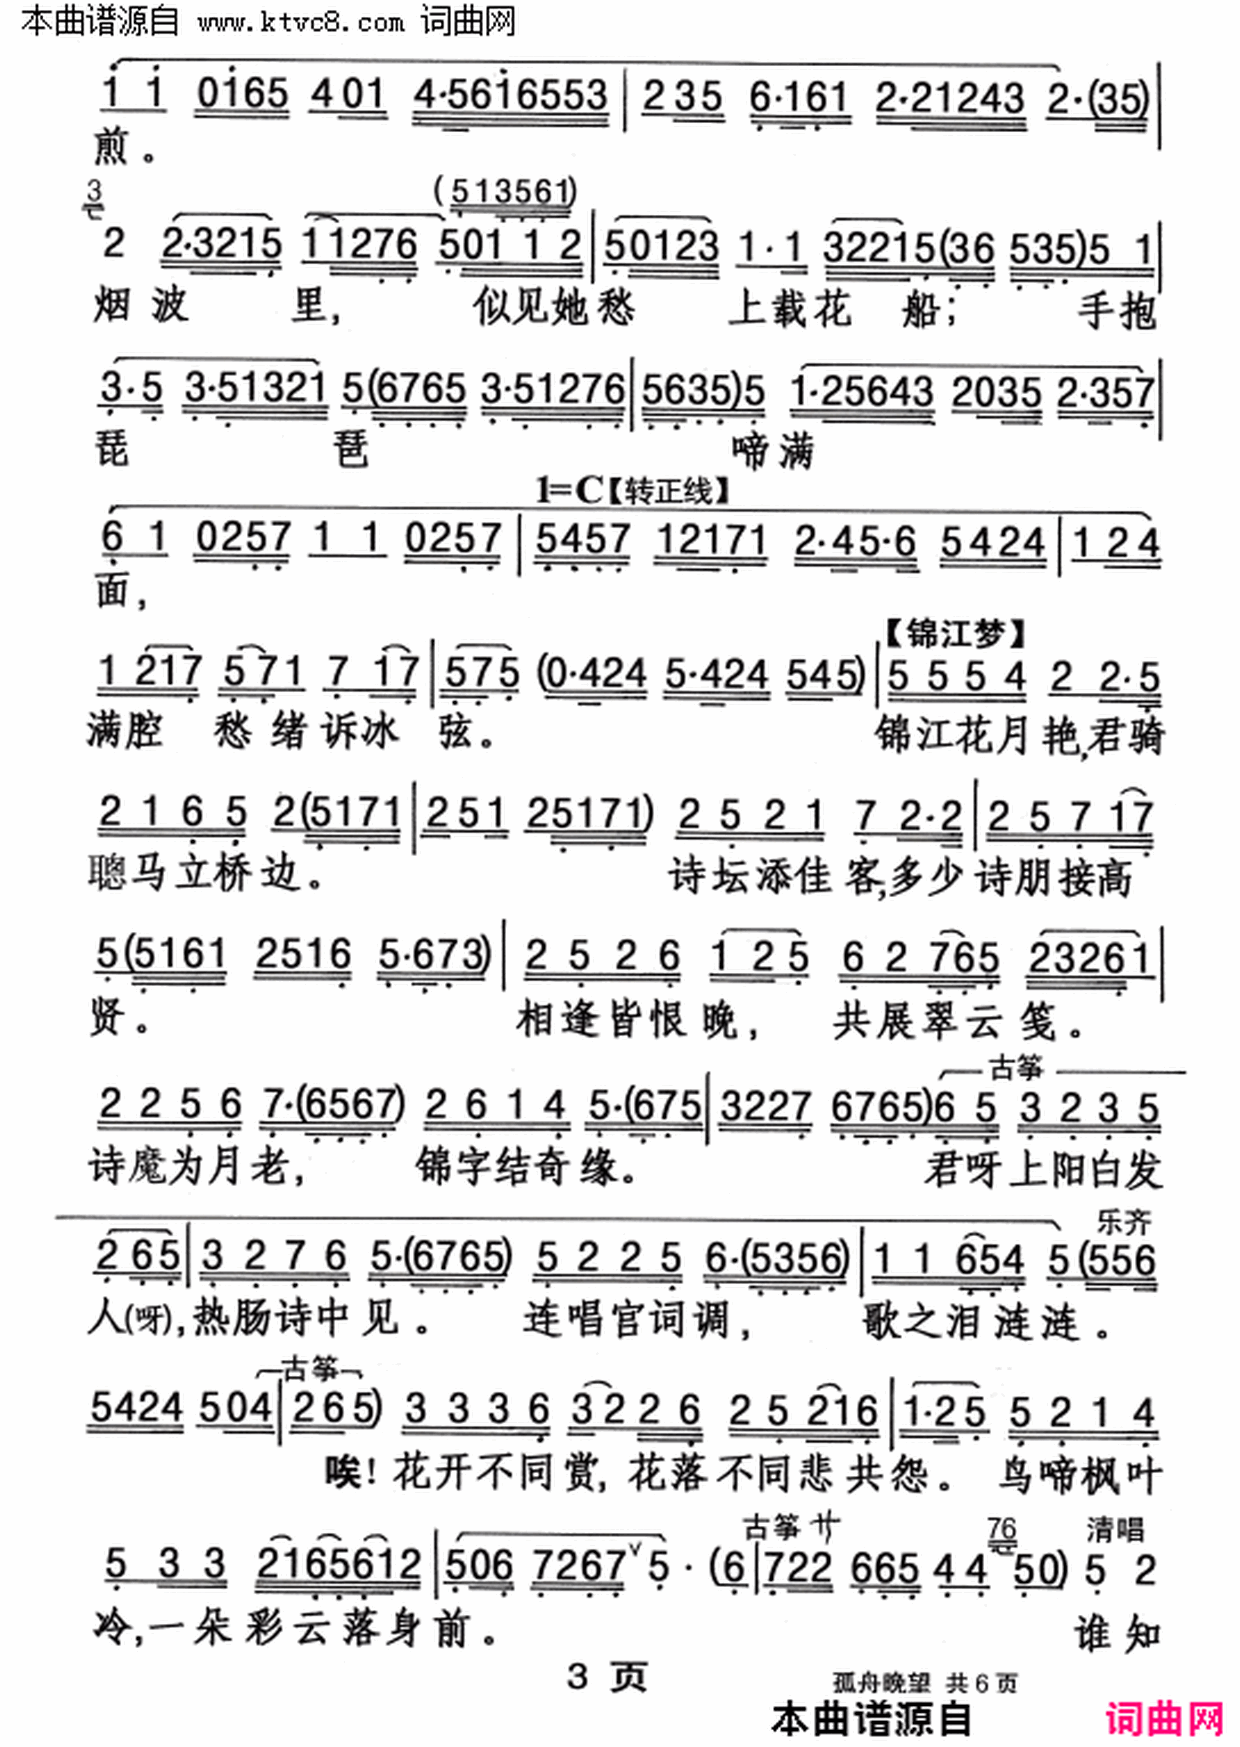 本曲谱源自 www.ktvc8.com 词曲网
1 1 0165 401 4·5616553 | 235 6·161 2·21243 2·(35) |
煎。
3 (513561)
2 2·3215 11276 501 1 2 | 50123 1·1 32215(36 535)5 1 |
烟波 里, 似见她愁 上载花 船; 手抱
3·5 3·51321 5(6765 3·51276 | 5635)5 1·25643 2035 2·357 |
琵 琶 啼满
1=C【转正线】
6 1 0257 1 1 0257 | 5457 12171 2·45·6 5424 | 124
面,
【锦江梦】
1 217 571 7 17 | 575 (0·424 5·424 545) | 5554 2 2·5
满腔 愁绪诉冰 弦。 锦江花月艳,君骑
2165 2(5171 | 251 25171) 2521 7 2·2 | 257 17
骢马立桥边。 诗坛添佳客,多少诗朋接高
5(5161 2516 5·673) | 2526 125 62765 23261 |
贤。 相逢皆恨晚, 共展翠云笺。
古筝
2256 7·(6567) 2614 5·(675 | 3227 6765)65 3235
诗魔为月老, 锦字结奇缘。 君呀上阳白发
乐齐
265 | 3276 5·(6765) 5225 6·(5356) | 11654 5(556
人(呀),热肠诗中见。 连唱宫词调, 歌之泪涟涟。
古筝
5424 504 | 265) 3336 3226 25216 | 1·25 5214
唉! 花开不同赏, 花落不同悲共怨。 鸟啼枫叶
古筝 サ 76 清唱
5 33 2165612 | 506 7267 ∨ 5·(6 | 722 665 44 50) 5 2
冷,一朵彩云落身前。 谁知
3 页
孤舟晚望 共6页
本曲谱源自 词曲网